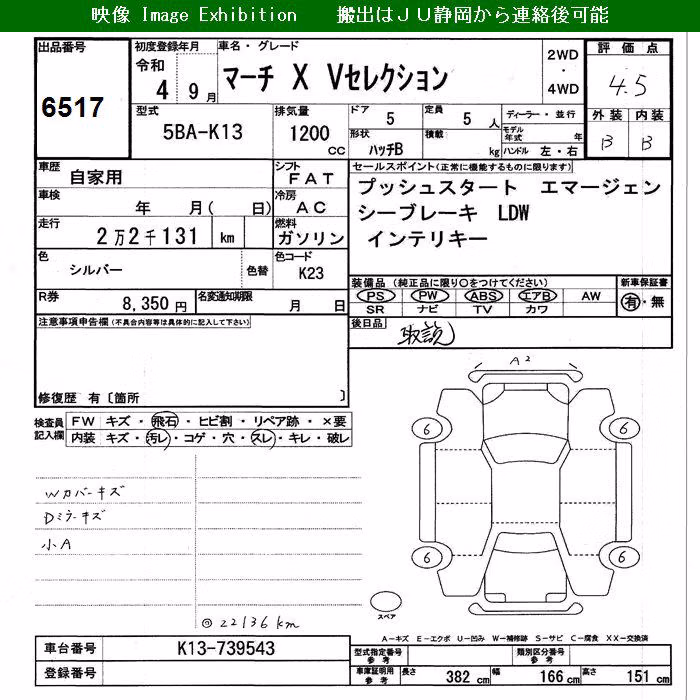 映像 Image Exhibition　搬出はＪＵ静岡から連絡後可能
出品番号
6517
初度登録年月
令和 4 9月
車名・グレード
マーチ X Vセレクション
2WD・4WD
評価点
4.5
型式
5BA-K13
排気量
1200 CC
ドア
5
定員
5 人
形状
ハッチB
積載
kg
ディーラー・並行
モデル年式 年
ハンドル 左・右
外装 内装
B B
車歴
自家用
シフト
FAT
車検
年 月( 日)
冷房
AC
走行
2万2千131 km
燃料
ガソリン
色
シルバー
色替
色コード
K23
R券
8,350円
名変通知期限
月 日
セールスポイント(正常に機能するものに限ります)
プッシュスタート エマージェン
シーブレーキ LDW
インテリキー
装備品 (純正品に限り○をつけてください)
PS PW ABS エアB AW
SR ナビ TV カワ
新車保証書
有・無
後日品
取説
注意事項申告欄(不具合内容等は具体的に記入して下さい)
修復歴 有〔箇所 〕
検査員記入欄
FW キズ・飛石・ヒビ割・リペア跡・×要
内装 キズ・汚レ・コゲ・穴・スレ・キレ・破レ
Wカバーキズ
Dミラーキズ
小A
◎22136km
A2
6 6
6 6
スペア
A―キズ E―エクボ U―凹み W―補修跡 S―サビ C―腐食 XX―交換済
車台番号
K13-739543
登録番号
型式指定番号 参考
類別区分番号 参考
車庫証明用 参考
長さ 382 cm 幅 166 cm 高さ 151 cm